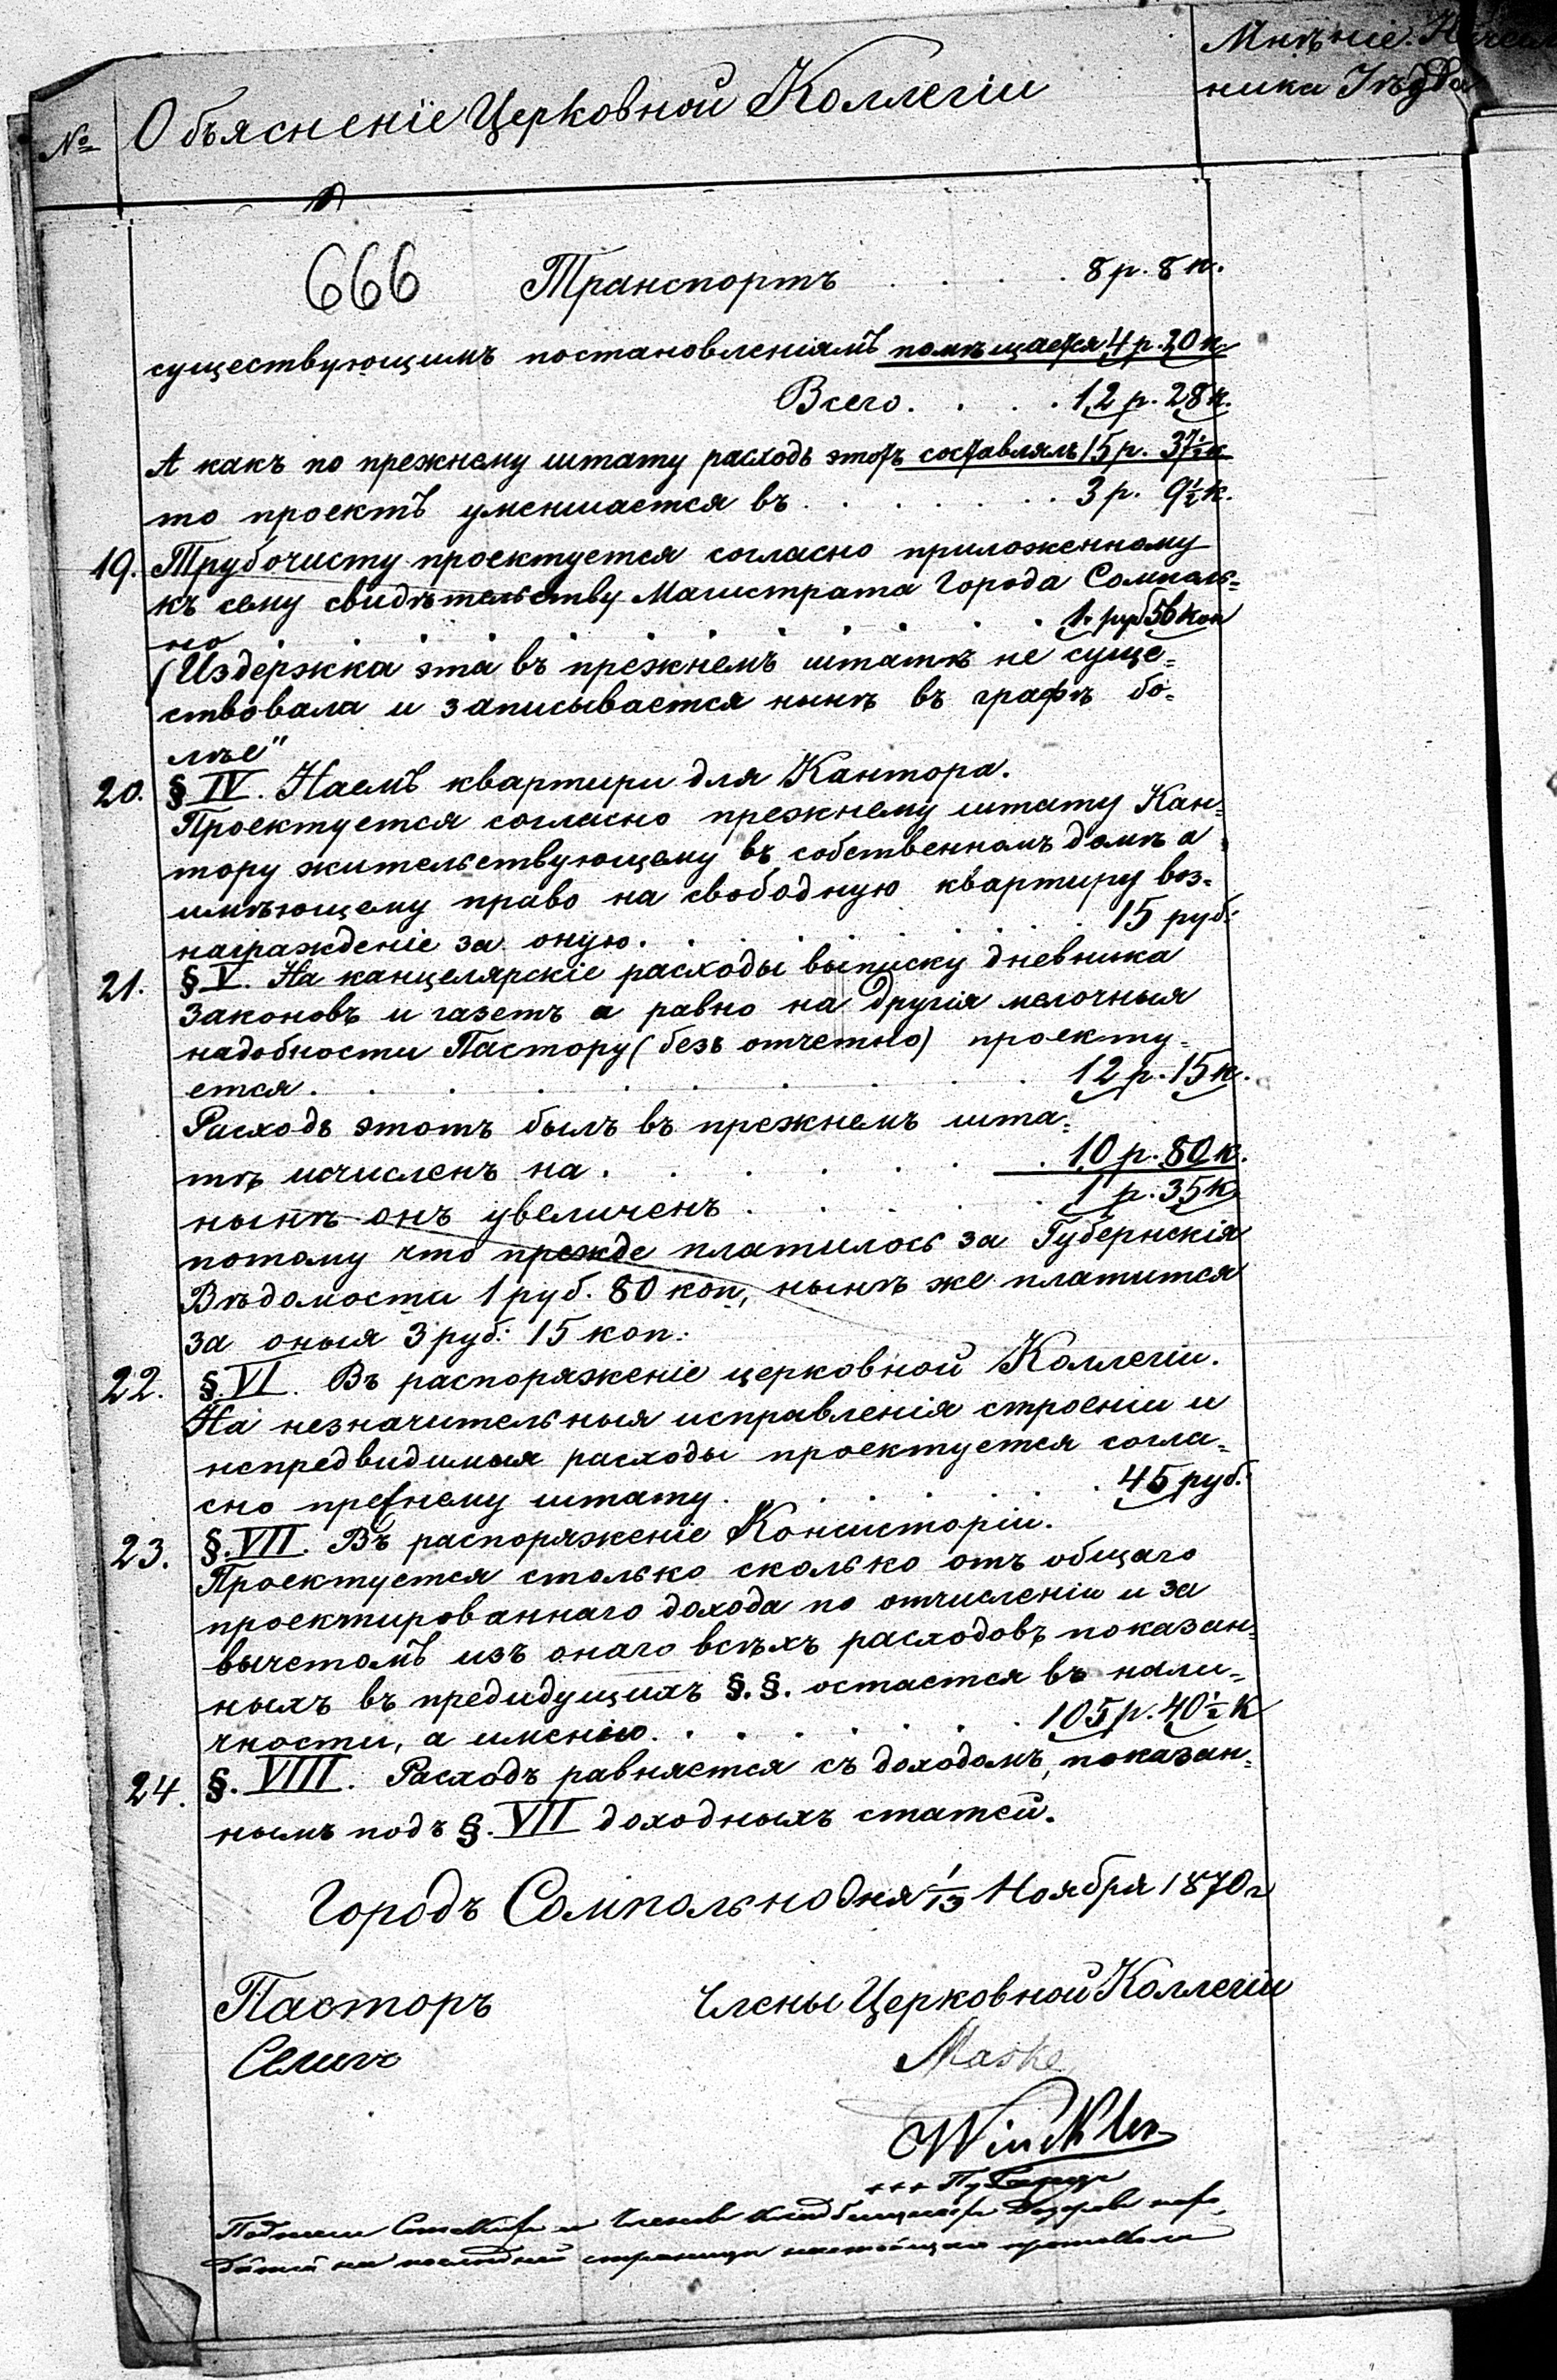 Мнѣніе Началь
ника Уѣзда
№ Объясненіе Церковной Коллегіи
666 Транспортъ . . . . 8 р. 8 к.
существующимъ постановленіямъ помѣщается 4 р. 20 к.
Всего. . . . 12 р. 28 к.
А какъ по прежнему штату расходъ этотъ составлялъ 15 р. 37½ к
то проектъ уменшается въ . . . . . 3 р. 9½ к.
19. Трубочисту проектуется согласно приложенному
къ сему свидѣтельству Магистрата Города Сомполь=
но . . . . . . . . 1. руб 56 коп
(Издержка эта въ прежнемъ штатѣ не суще=
ствовала и записывается нынѣ въ графѣ бо=
лѣе"
20. § IV. Наемъ квартири для Кантора.
Проектуется согласно прежнему штату Кан=
тору жительствующему въ собственномъ домѣ а
имѣющему право на свободную квартиру воз=
награжденіе за оную. . . . . . . 15 руб:
21. § V. На канцелярскіе расходы выписку дневника
Законовъ и газетъ а равно на другія мелочныя
надобности Пастору (безъ отчетно) проекту=
ется. . . . . . . . 12 р. 15 к.
Расходъ этотъ былъ въ прежнемъ шта=
тѣ исчисленъ на . . . . . . 10 р. 80 к.
нынѣ онъ увеличенъ . . . . . 1 р. 35 к
потому что прежде платилось за Губернскія
Вѣдомости 1 руб. 80 коп, нынѣ же платится
за оныя 3 руб: 15 коп:
22. §. VI. Въ распоряженіе церковной Коллегіи.
На незначительныя исправленія строеніи и
непредвидимыя расходы проектуется согла=
сно прежнему штату. . . . . . 45 руб:
23. §. VII. Въ распоряженіе Консисторіи.
Проектуется столько сколько отъ общаго
проектированнаго дохода по отчисленіи и за
вычетомъ изъ онаго всѣхъ расходовъ показан=
ныхъ въ предидущихъ §.§. остается въ нали=
чности, а именно. . . . . . 105 р. 40½ к
24. §. VIII. Расходъ равняется съ доходомъ, показан=
нымъ подъ §. VII доходныхъ статей.
Городъ Сомпольно дня 1/13 Ноября 1870 г
Пасторъ Члены Церковной Коллегіи
Maske
Winckler
+++
Подписи и Членовъ Дозора
на послѣдней страницѣ настоящаго протокола